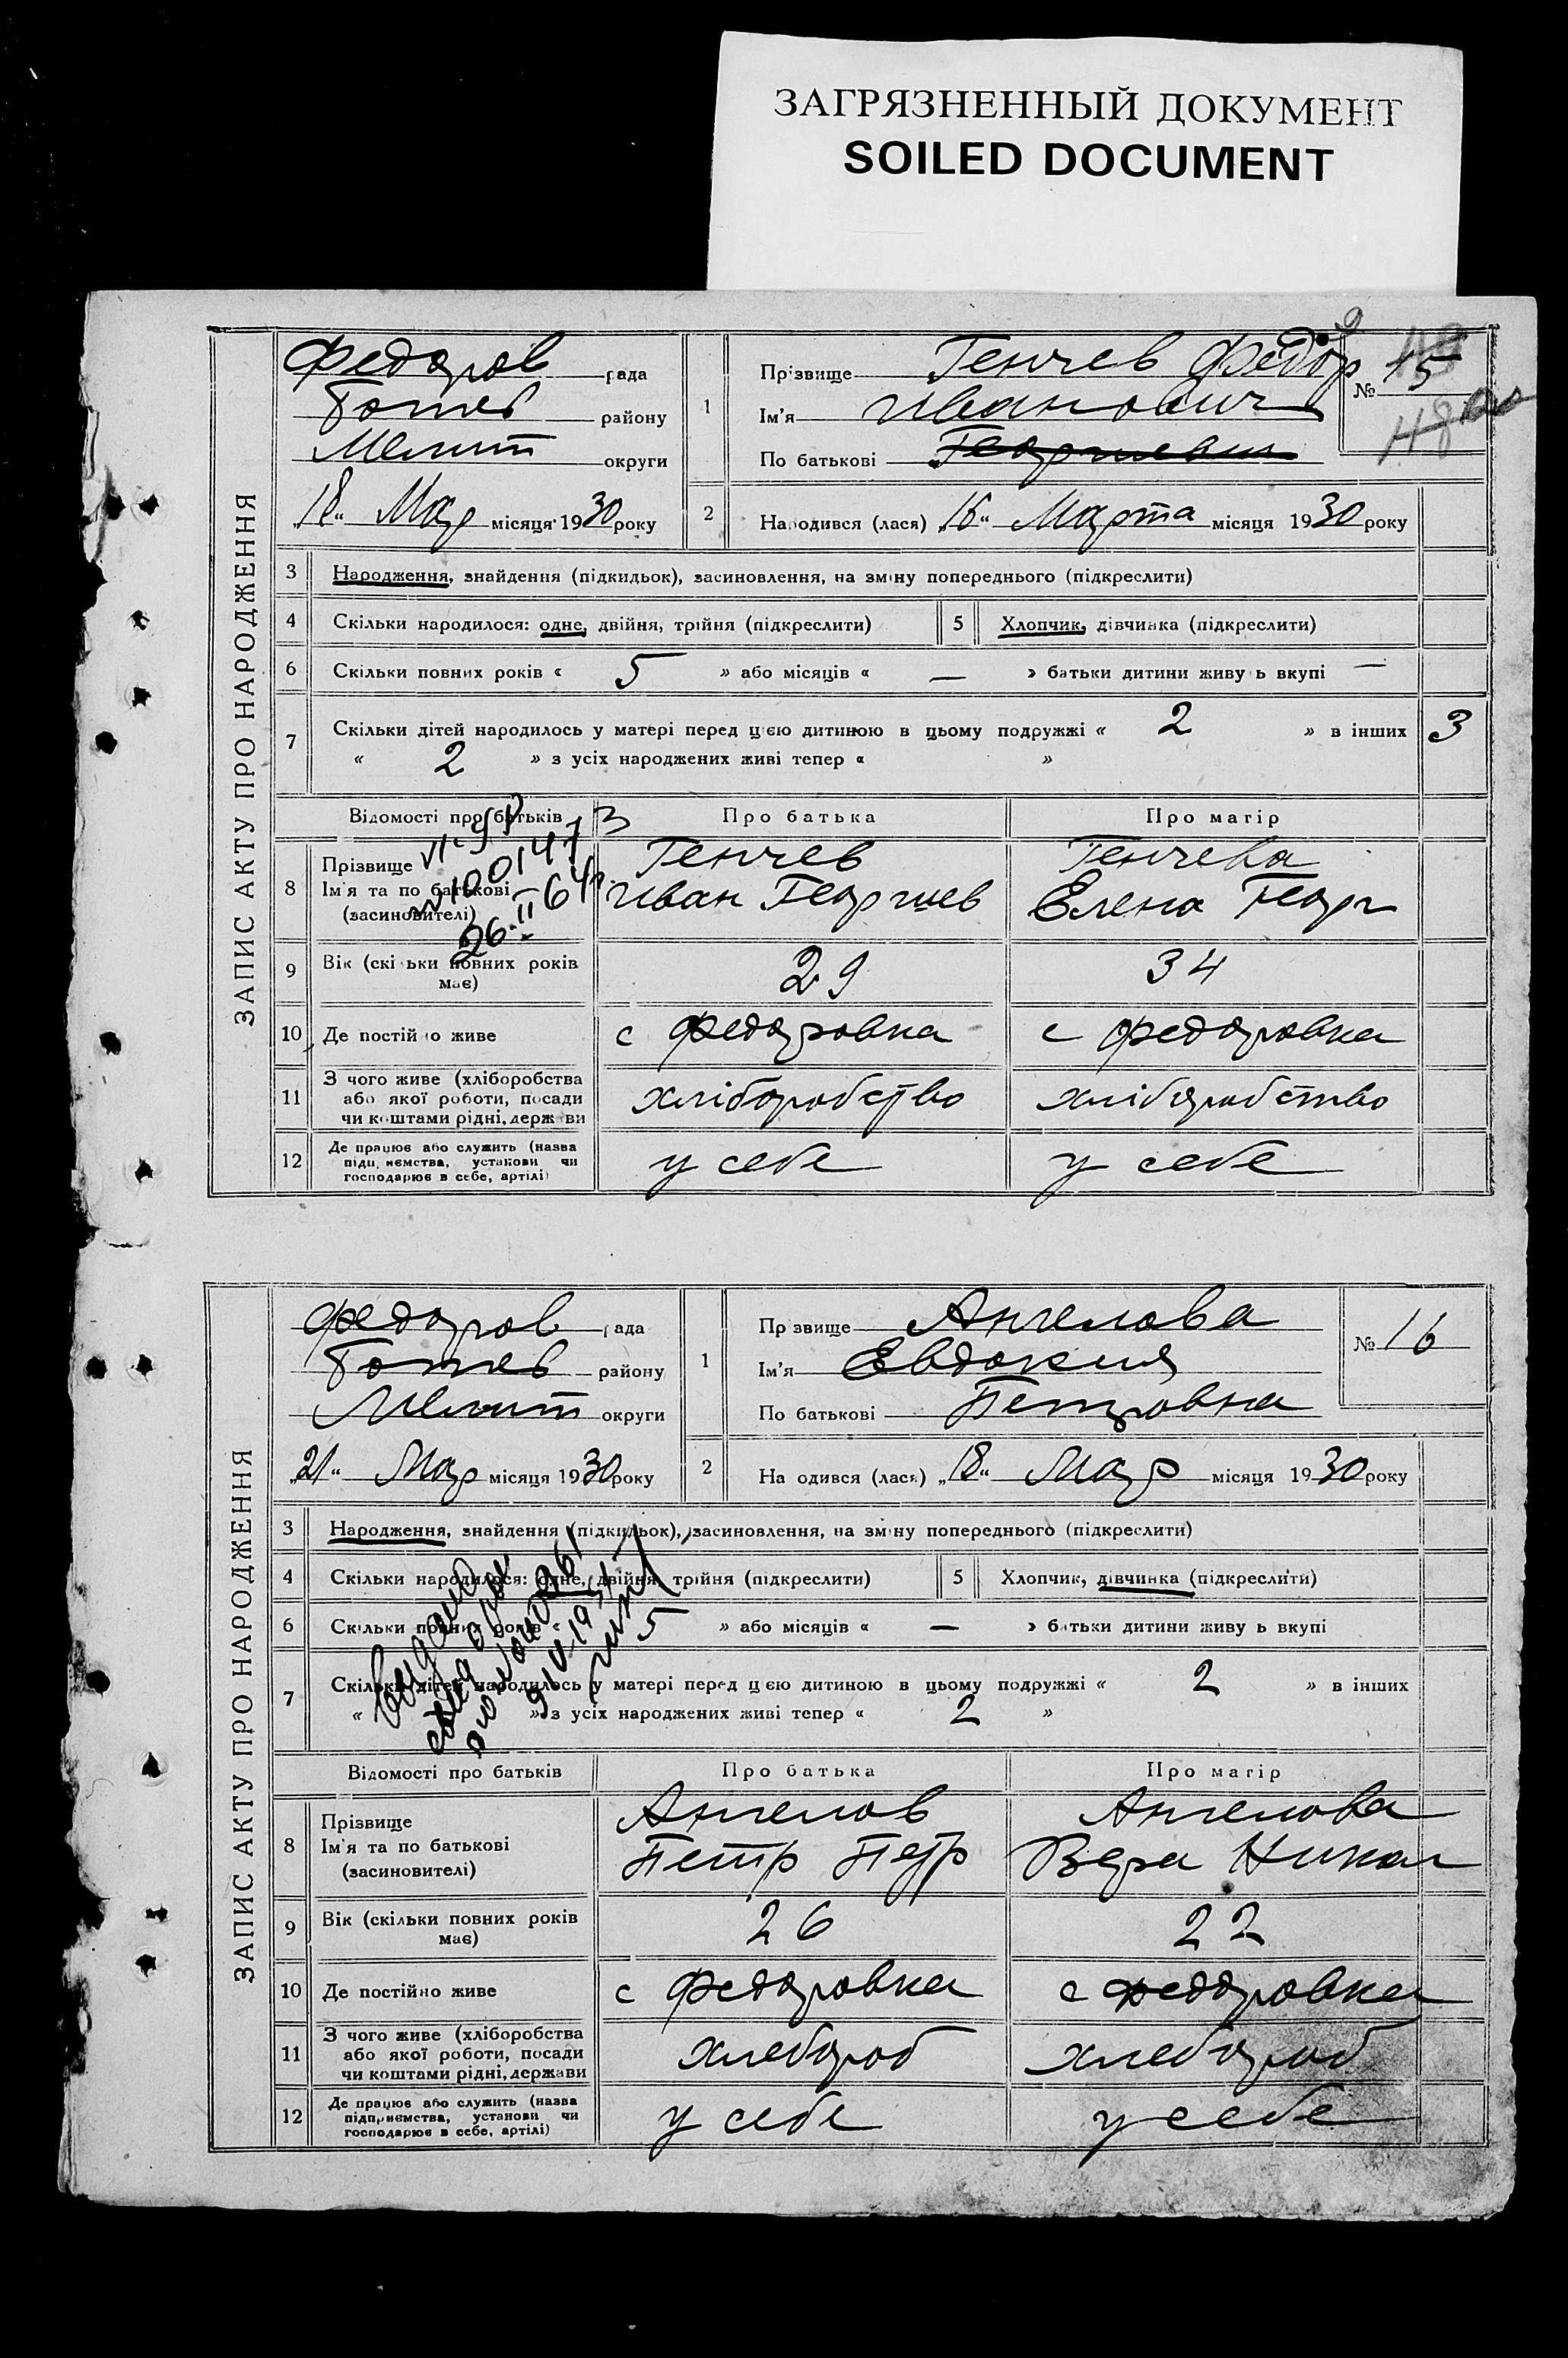 ЗАГРЯЗНЕННЫЙ ДОКУМЕНТ
SOILED DOCUMENT
ЗАПИС АКТУ ПРО НАРОДЖЕННЯ
Федоров рада
Ботев району
Мелит округи
"18" Мар місяця 1930 року
1
Прізвище Генчев Федор
Ім'я Иванович
По батькові Георгиевич
№ 15
2
Народився (лася) "16" Марта місяця 1930 року
3 Народження, знайдення (підкидьок), засиновлення, на зміну попереднього (підкреслити)
4 Скільки народилося: одне, двійня, трійня (підкреслити)
5 Хлопчик, дівчинка (підкреслити)
6 Скільки повних років « 5 » або місяців « — » батьки дитини живуть вкупі —
7 Скільки дітей народилось у матері перед цією дитиною в цьому подружжі « 2 » в інших 3
« 2 » з усіх народжених живі тепер « »
Відомості про батьків
Про батька
Про матір
8 Прізвище
Ім'я та по батькові
(засиновителі)
Генчев
Иван Георгиев
Генчева
Елена Георг
26.II 64
9 Вік (скільки повних років має)
29
34
10 Де постійно живе
с Федоровка
с Федоровка
11 З чого живе (хліборобства
або якої роботи, посади
чи коштами рідні, держави
хліборобство
хліборобство
12 Де працює або служить (назва
підприємства, установи чи
господарює в себе, артілі)
у себе
у себе
ЗАПИС АКТУ ПРО НАРОДЖЕННЯ
Федоров рада
Ботев району
Мелит округи
"21" Мар місяця 1930 року
1
Прізвище Ангелова
Ім'я Евдокия
По батькові Петровна
№ 16
2
Народився (лася) "18" Мар місяця 1930 року
3 Народження, знайдення (підкидьок), засиновлення, на зміну попереднього (підкреслити)
4 Скільки народилося: одне, двійня, трійня (підкреслити)
5 Хлопчик, дівчинка (підкреслити)
6 Скільки повних років « 5 » або місяців « — » батьки дитини живуть вкупі
7 Скільки дітей народилось у матері перед цією дитиною в цьому подружжі « 2 » в інших
« » з усіх народжених живі тепер « 2 »
Відомості про батьків
Про батька
Про матір
8 Прізвище
Ім'я та по батькові
(засиновителі)
Ангелов
Петр Петр
Ангелова
Вера Никол
9 Вік (скільки повних років має)
26
22
10 Де постійно живе
с Федоровка
с Федоровка
11 З чого живе (хліборобства
або якої роботи, посади
чи коштами рідні, держави
хлебороб
хлебороб
12 Де працює або служить (назва
підприємства, установи чи
господарює в себе, артілі)
у себе
у себе